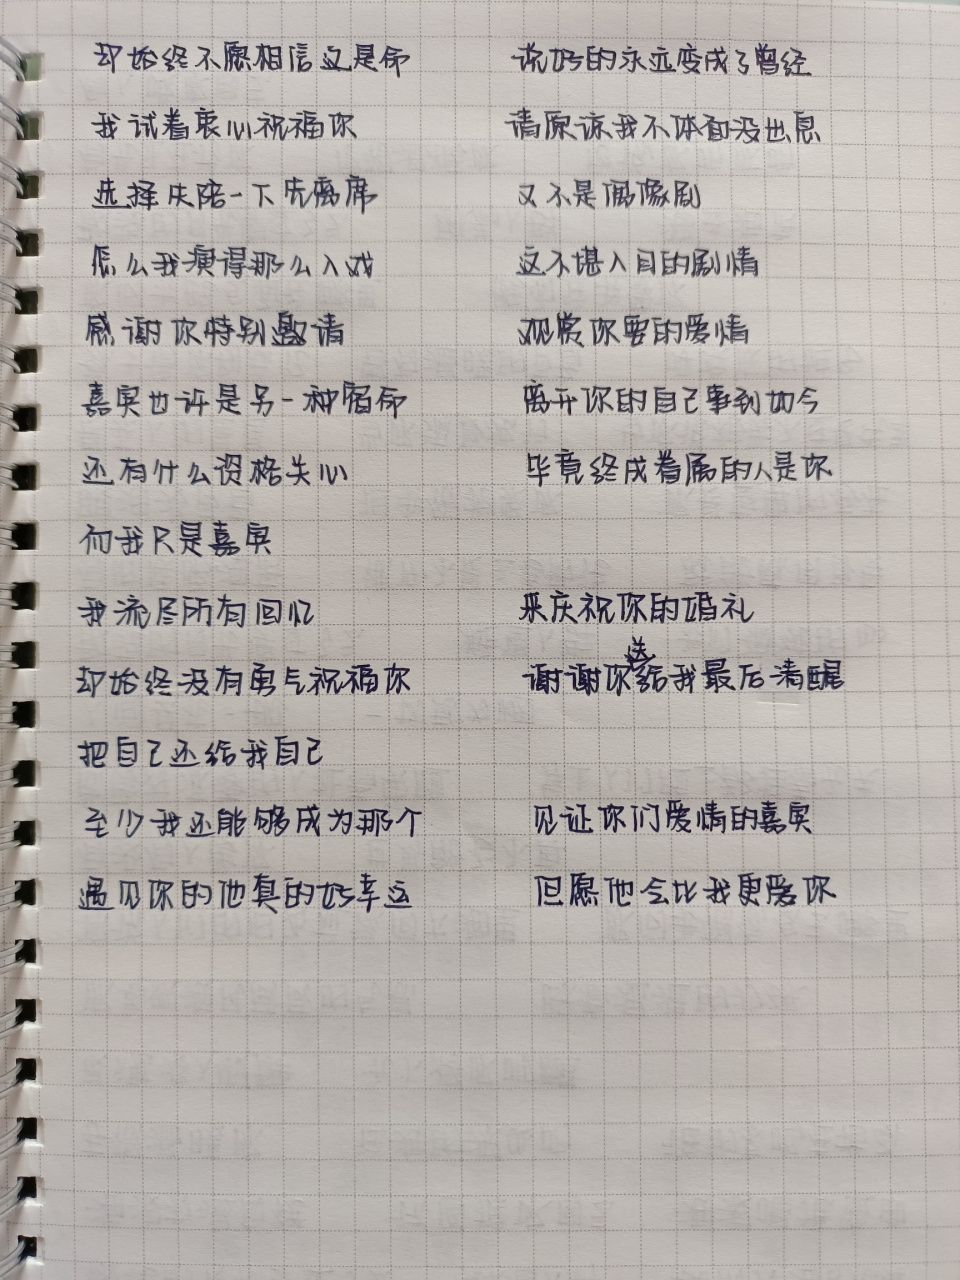 却始终不愿相信这是命 说好的永远变成了曾经
我试着衷心祝福你 请原谅我不体面没出息
选择失陪一下先离席 又不是偶像剧
怎么我演得那么入戏 这不堪入目的剧情
感谢你特别邀请 观赏你要的爱情
嘉宾也许是另一种宿命 离开你的自己事到如今
还有什么资格失心 毕竟终成眷属的人是你
而我只是嘉宾
我流尽所有回忆 来庆祝你的婚礼
却始终没有勇气祝福你 谢谢你送给我最后清醒
把自己还给我自己
至少我还能够成为那个 见证你们爱情的嘉宾
遇见你的他真的好幸运 但愿他会比我更爱你